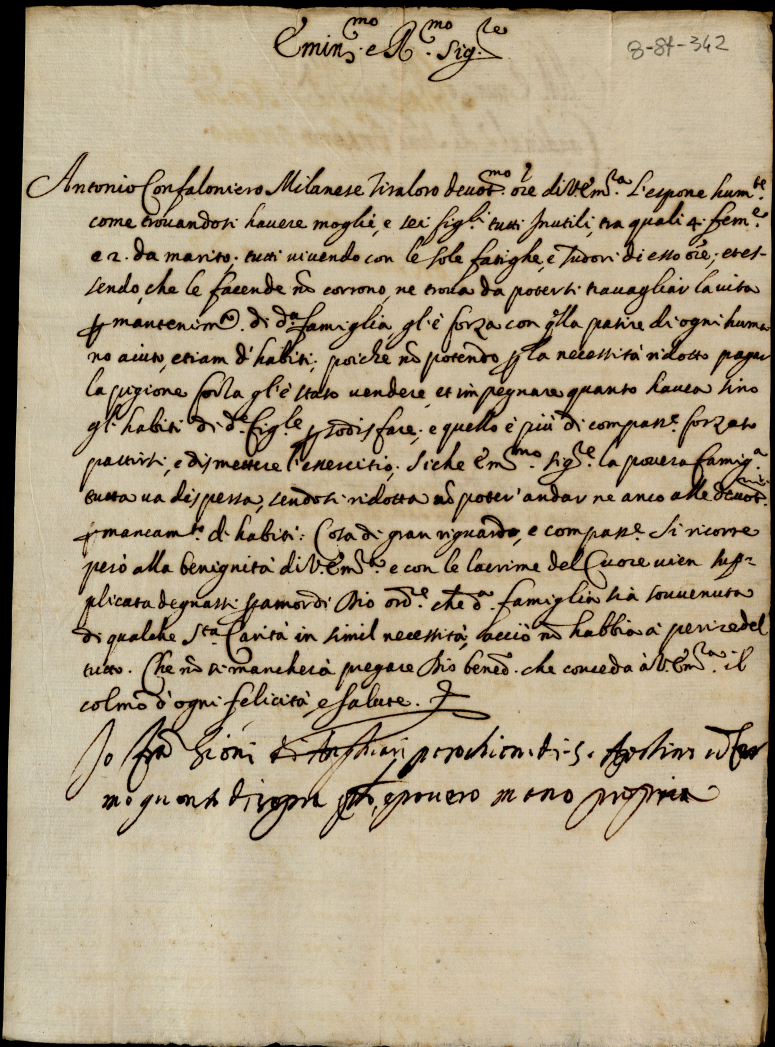 Emin.mo e R.mo Sig.re
8-84-342
Antonio Confaloniero Milanese Tiraloro devot.mo ōre di V. Em.a l'espone hum.te
come trovandosi havere moglie, e sei figl.i tutti Inutili, tra quali 4. fem.e
e 2. da marito. tutti vivendo con le sole fatighe, e sudori di esso ōre; et es-
sendo, che le facende nō corrono, ne trova da potersi travagliar la vita
p mantenim.to di d.a famiglia gl'è forza con q̄lla patire di ogni huma
no aiuto, etiam d'habiti; poiche nō potendo p la necessità ridotto pagar
la pigione forza gl'è stato vendere, et impegnare quanto havea sino
gl'habiti di d.e Figl.e p sodisfare; e quello è più di compass.e forzato
partirsi, e dismettere l'essercitio. Siche Em.mo Sig.re la povera famig.a
tutta va dispersa, sendosi ridotta nō poter' andar ne anco alle devot.ni
p mancam.to di habiti: Cosa di gran riguardo, e compass.e Si ricorre
però alla benignità di V. Em.a e con le lacrime del Cuore vien sup-
plicata degnarsi p amor di Dio ord.re che d.a famiglia sia souvenuta
di qualche S.ta Carità in simil necessità, acciò nō habbia à perire del
tutto. Che nō si mancherà pregare Dio bened.o che conceda à V. Em.a il
colmo d'ogni felicità, e salute.
Io parochiano di S.
mo quanto di sopra e povero mano propria